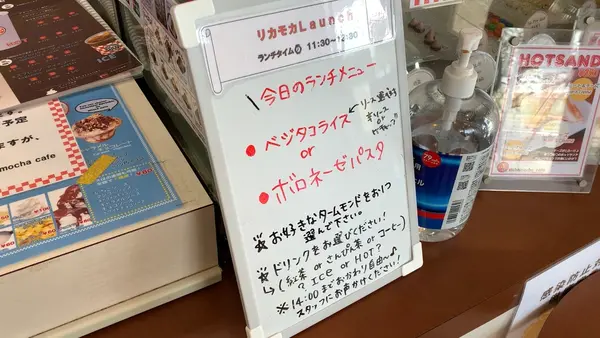 リカモカLaunch
ランチタイム 11:30~
今日のランチメニュー
・ベジタコライス
or
・ボロネーゼパスタ
お好きなタームモンドをお1つ
選んで下さい。
※ドリンクをお選びください!
↳(紅茶 or さんぴん茶 or コーヒー)
? ICE or HOT?
※14:00までおかわり自由~♪
スタッフにお声がけください!
予定
ますが、
mocha cafe
ICE
HOTSAND
感染防止